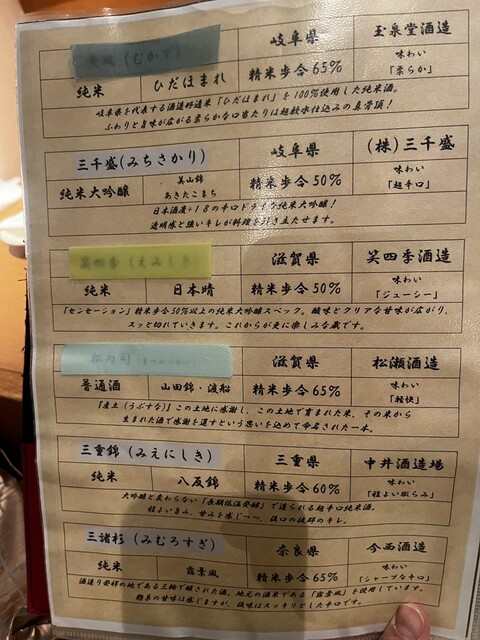 (むかで) 岐阜県 玉泉堂酒造
純米 ひだほまれ 精米歩合65% 味わい
「柔らか」
岐阜県を代表する酒造好適米「ひだほまれ」を100%使用した純米酒。
ふわりと旨味が広がる柔らかな口当たりは超軟水仕込みの真骨頂!
三千盛(みちさかり) 岐阜県 (株)三千盛
純米大吟醸 美山錦 精米歩合50% 味わい
あきたこまち 「超辛口」
日本酒度+18の辛口ドライな純米大吟醸!
透明感と強いキレが料理を引き立たせます。
笑四季(えみしき) 滋賀県 笑四季酒造
純米 日本晴 精米歩合50% 味わい
「ジューシー」
「センセーション」精米歩合50%以上の純米大吟醸スペック。酸味とクリアな甘味が広がり、
スッと切れていきます。これからが更に楽しみな蔵です。
松の司(まつのつかさ) 滋賀県 松瀬酒造
普通酒 山田錦・渡船 精米歩合65% 味わい
「軽快」
「産土(うぶすな)」この土地に感謝し、この土地で育まれた米、その米から
生まれた酒で感謝を還すという思いを込めて命名された一本。
三重錦(みえにしき) 三重県 中井酒造場
純米 八反錦 精米歩合60% 味わい
「程よい膨らみ」
大吟醸と変わらない「長期低温発酵」で造られる超辛口純米酒。
程よい旨み、甘みを感じつつ、後口の抜群のキレ。
三諸杉(みむろすぎ) 奈良県 今西酒造
純米 露葉風 精米歩合65% 味わい
「シャープな辛口」
酒造り発祥の地である三輪で醸された酒。地元の酒米である「露葉風」を使用しています。
麹系の甘味は感じますが、後味はスッキリとした辛口です。